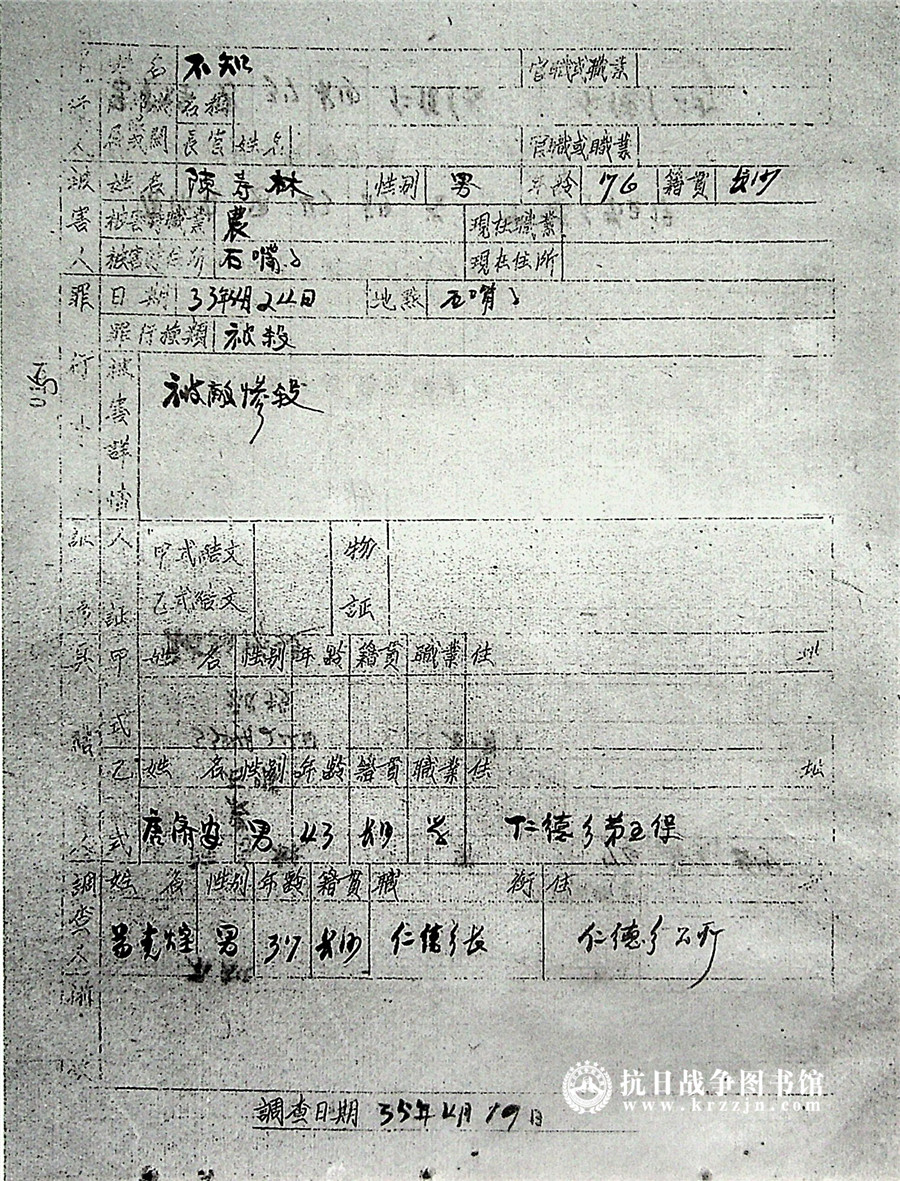 名 不知 官職或職業
名稱
長官 姓名 官職或職業
被害人 姓名 陳壽林 性別 男 年齡 76 籍貫 長沙
被害時職業 農 現在職業
被害時住所 石嘴 現在住所
罪行 日期 33年 月24日 地點 石嘴
罪行種類 被殺
被害詳情 被敵慘殺
人証 甲式結文 物証
乙式結文
甲式 姓名 性別 年齡 籍貫 職業 住
乙式 姓名 性別 年齡 籍貫 職業 住址
男 43 長沙 仁德乡第五保
調查人 姓名 性別 年齡 籍貫 職銜 住
男 37 長沙 仁德乡長 仁德乡公所
調查日期 35年4月19日
抗日战争图书馆
www.krzzjn.com